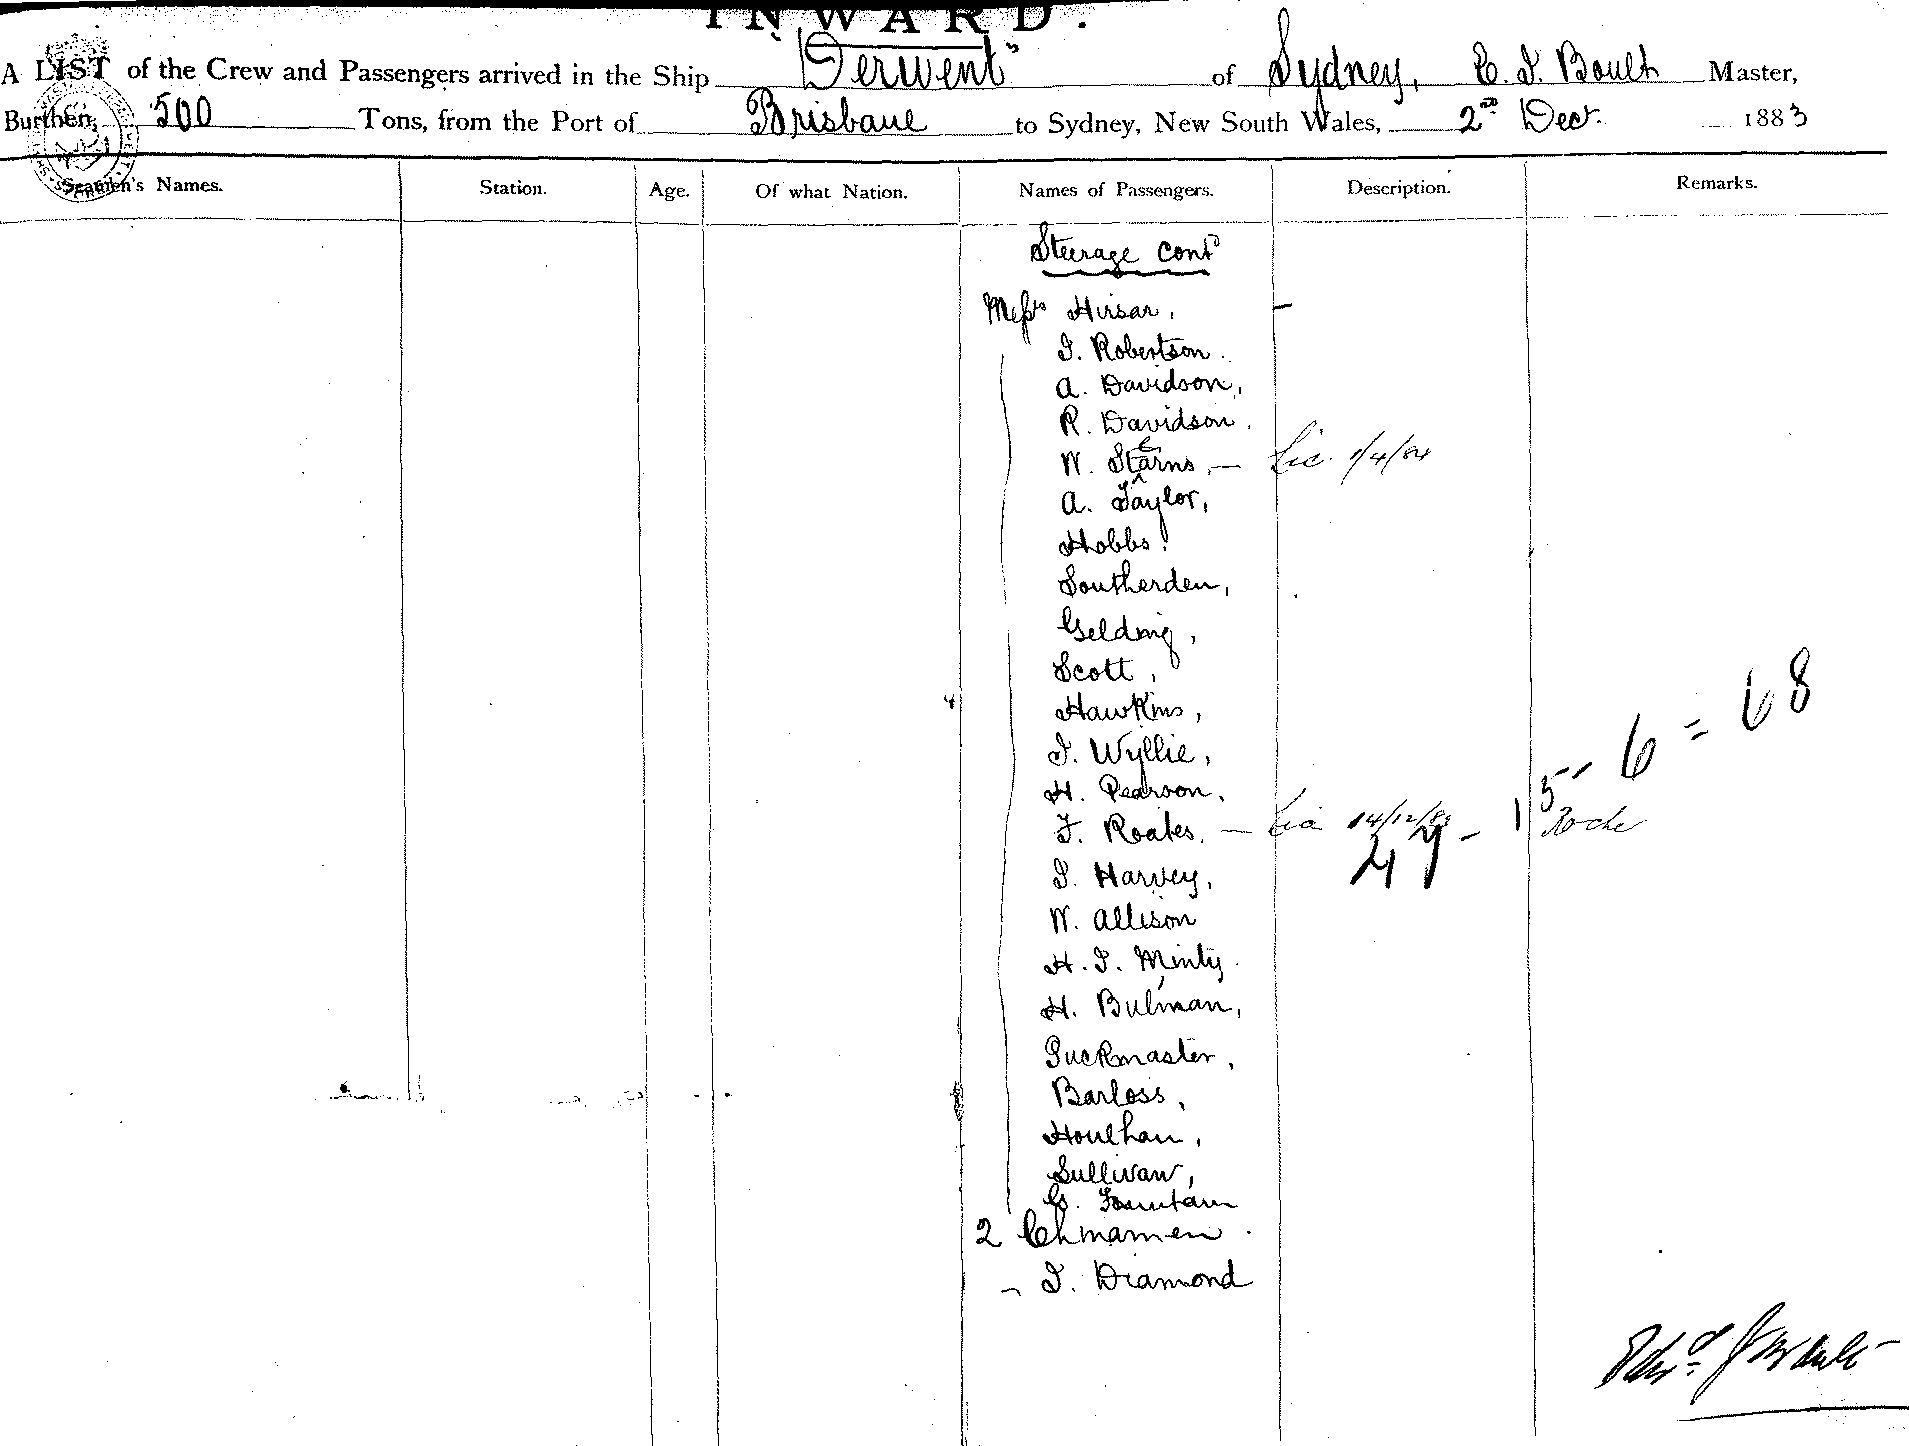 INWARD.
A LIST of the Crew and Passengers arrived in the Ship "Derwent" of Sydney, E. J. Boult Master,
Burthen, 500 Tons, from the Port of Brisbane to Sydney, New South Wales, 2nd Dec. 1883
Seamen's Names. Station. Age. Of what Nation. Names of Passengers. Description. Remarks.
Steerage contd
Messrs Hirsar, -
J. Robertson.
A. Davidson,
R. Davidson.
W. Stearns, - Lic. 1/4/84
A. Taylor,
Hobbs.
Southerden,
Gelding,
Scott,
Hawkins,
J. Wyllie,
H. Pearson,
F. Roates. - Lic 14/12/83 Roche
47 - 15 - 6 = 68
J. Harvey,
W. Allison
H. J. Minty.
H. Bulman,
Puckmaster,
Barloss,
Houlhan,
Sullivan,
G. Fountain
2 Chinamen.
- J. Diamond